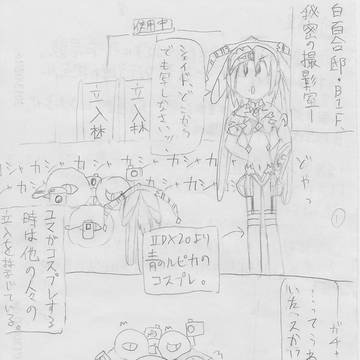 白百合邸・B1F、
秘密の撮影室ー
使用中
シェイド、どこから
でも写しなさいッ、
立入禁
立入禁
どやっ
カシャカシャカシャカシャカシャ
カシャカシャカシャ
①
IIDX20より
青のルピカの
コスプレ。
ユマがコスプレする
時は他の人々の
立入を禁じている。
ガチャ
…ってうお
いたっスか!?